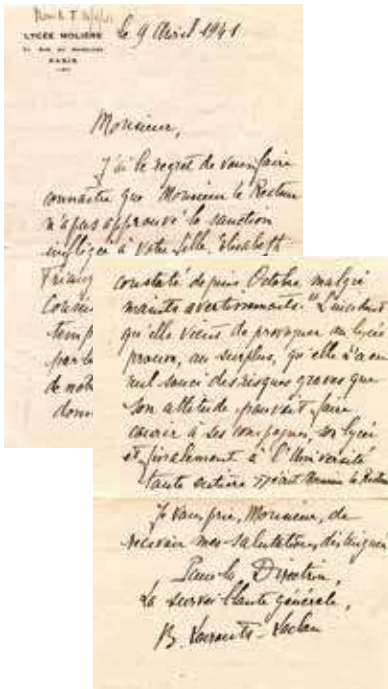 LYCÉE MOLIÈRE
PARIS
le 9 Avril 1941
Monsieur,
J'ai le regret de vous faire
connaître que Monsieur le Recteur
n'a pas approuvé la sanction
infligée à votre fille, Elisabeth
constaté depuis Octobre malgré
maints avertissements." L'incident
qu'elle vient de provoquer au lycée
prouve, au surplus, qu'elle n'a eu
nul souci des risques graves que
son attitude pouvait faire
courir à ses compagnes, son lycée
et finalement à l'Université
toute entière
Je vous prie, Monsieur, de
recevoir mes salutations distinguées
Pour la Directrice,
La surveillante générale,